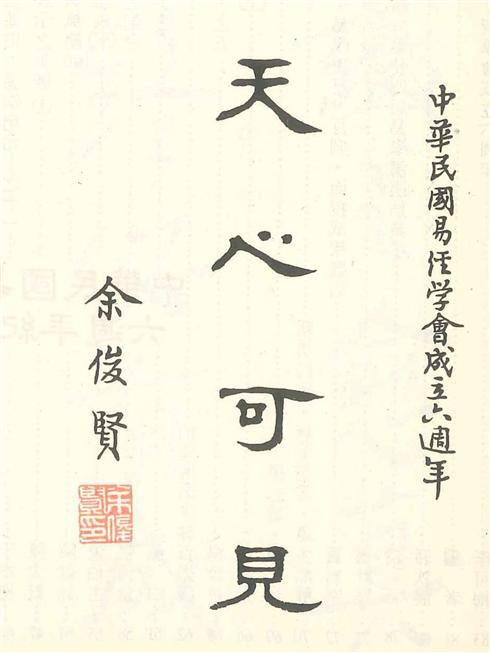 中華民國易经学會成立六週年
天心可見
余俊賢